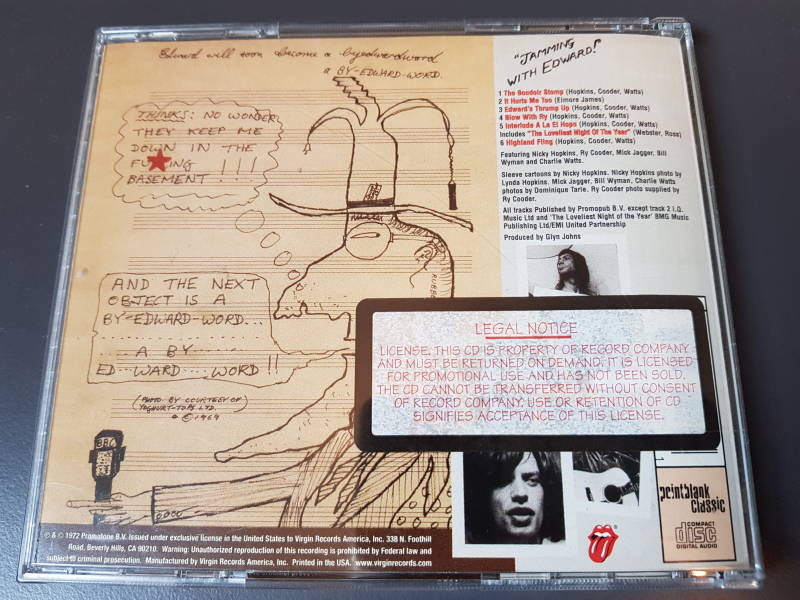 Edward will soon become a byedwardword
a BY-EDWARD-WORD.
THINKS: NO WONDER
THEY KEEP ME
DOWN IN THE
FU★ING !!!
BASEMENT....
AND THE NEXT
OBJECT IS A
BY-EDWARD-WORD...
A BY
ED··WARD···WORD!!
(PHOTO BY COURTESY OF
YOGHURT-TOPS LTD.
© 1969
BBC
"JAMMING
WITH EDWARD!"
1 The Boudoir Stomp (Hopkins, Cooder, Watts)
2 It Hurts Me Too (Elmore James)
3 Edward's Thrump Up (Hopkins, Cooder, Watts)
4 Blow With Ry (Hopkins, Cooder, Watts)
5 Interlude A La El Hopo (Hopkins, Cooder, Watts)
Includes "The Loveliest Night Of The Year" (Webster, Ross)
6 Highland Fling (Hopkins, Cooder, Watts)
Featuring Nicky Hopkins, Ry Cooder, Mick Jagger, Bill
Wyman and Charlie Watts.
Sleeve cartoons by Nicky Hopkins. Nicky Hopkins photo by
Lynda Hopkins. Mick Jagger, Bill Wyman, Charlie Watts
photos by Dominique Tarle. Ry Cooder photo supplied by
Ry Cooder.
All tracks Published by Promopub B.V. except track 2 I.Q.
Music Ltd and 'The Loveliest Night of the Year' BMG Music
Publishing Ltd/EMI United Partnership
Produced by Glyn Johns
LEGAL NOTICE
LICENSE. THIS CD IS PROPERTY OF RECORD COMPANY
AND MUST BE RETURNED ON DEMAND. IT IS LICENSED
FOR PROMOTIONAL USE AND HAS NOT BEEN SOLD.
THE CD CANNOT BE TRANSFERRED WITHOUT CONSENT
OF RECORD COMPANY. USE OR RETENTION OF CD
SIGNIFIES ACCEPTANCE OF THIS LICENSE.
pointblank
classic
COMPACT
disc
DIGITAL AUDIO
℗ & © 1972 Promotone B.V. Issued under exclusive license in the United States to Virgin Records America, Inc. 338 N. Foothill
Road, Beverly Hills, CA 90210. Warning: Unauthorized reproduction of this recording is prohibited by Federal law and
subject to criminal prosecution. Manufactured by Virgin Records America, Inc. Printed in the USA. www.virginrecords.com